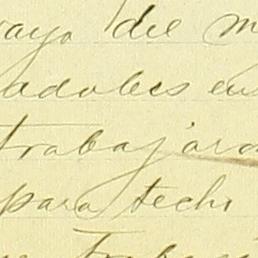 vayo del m
adobes en
trabajaro
para techi